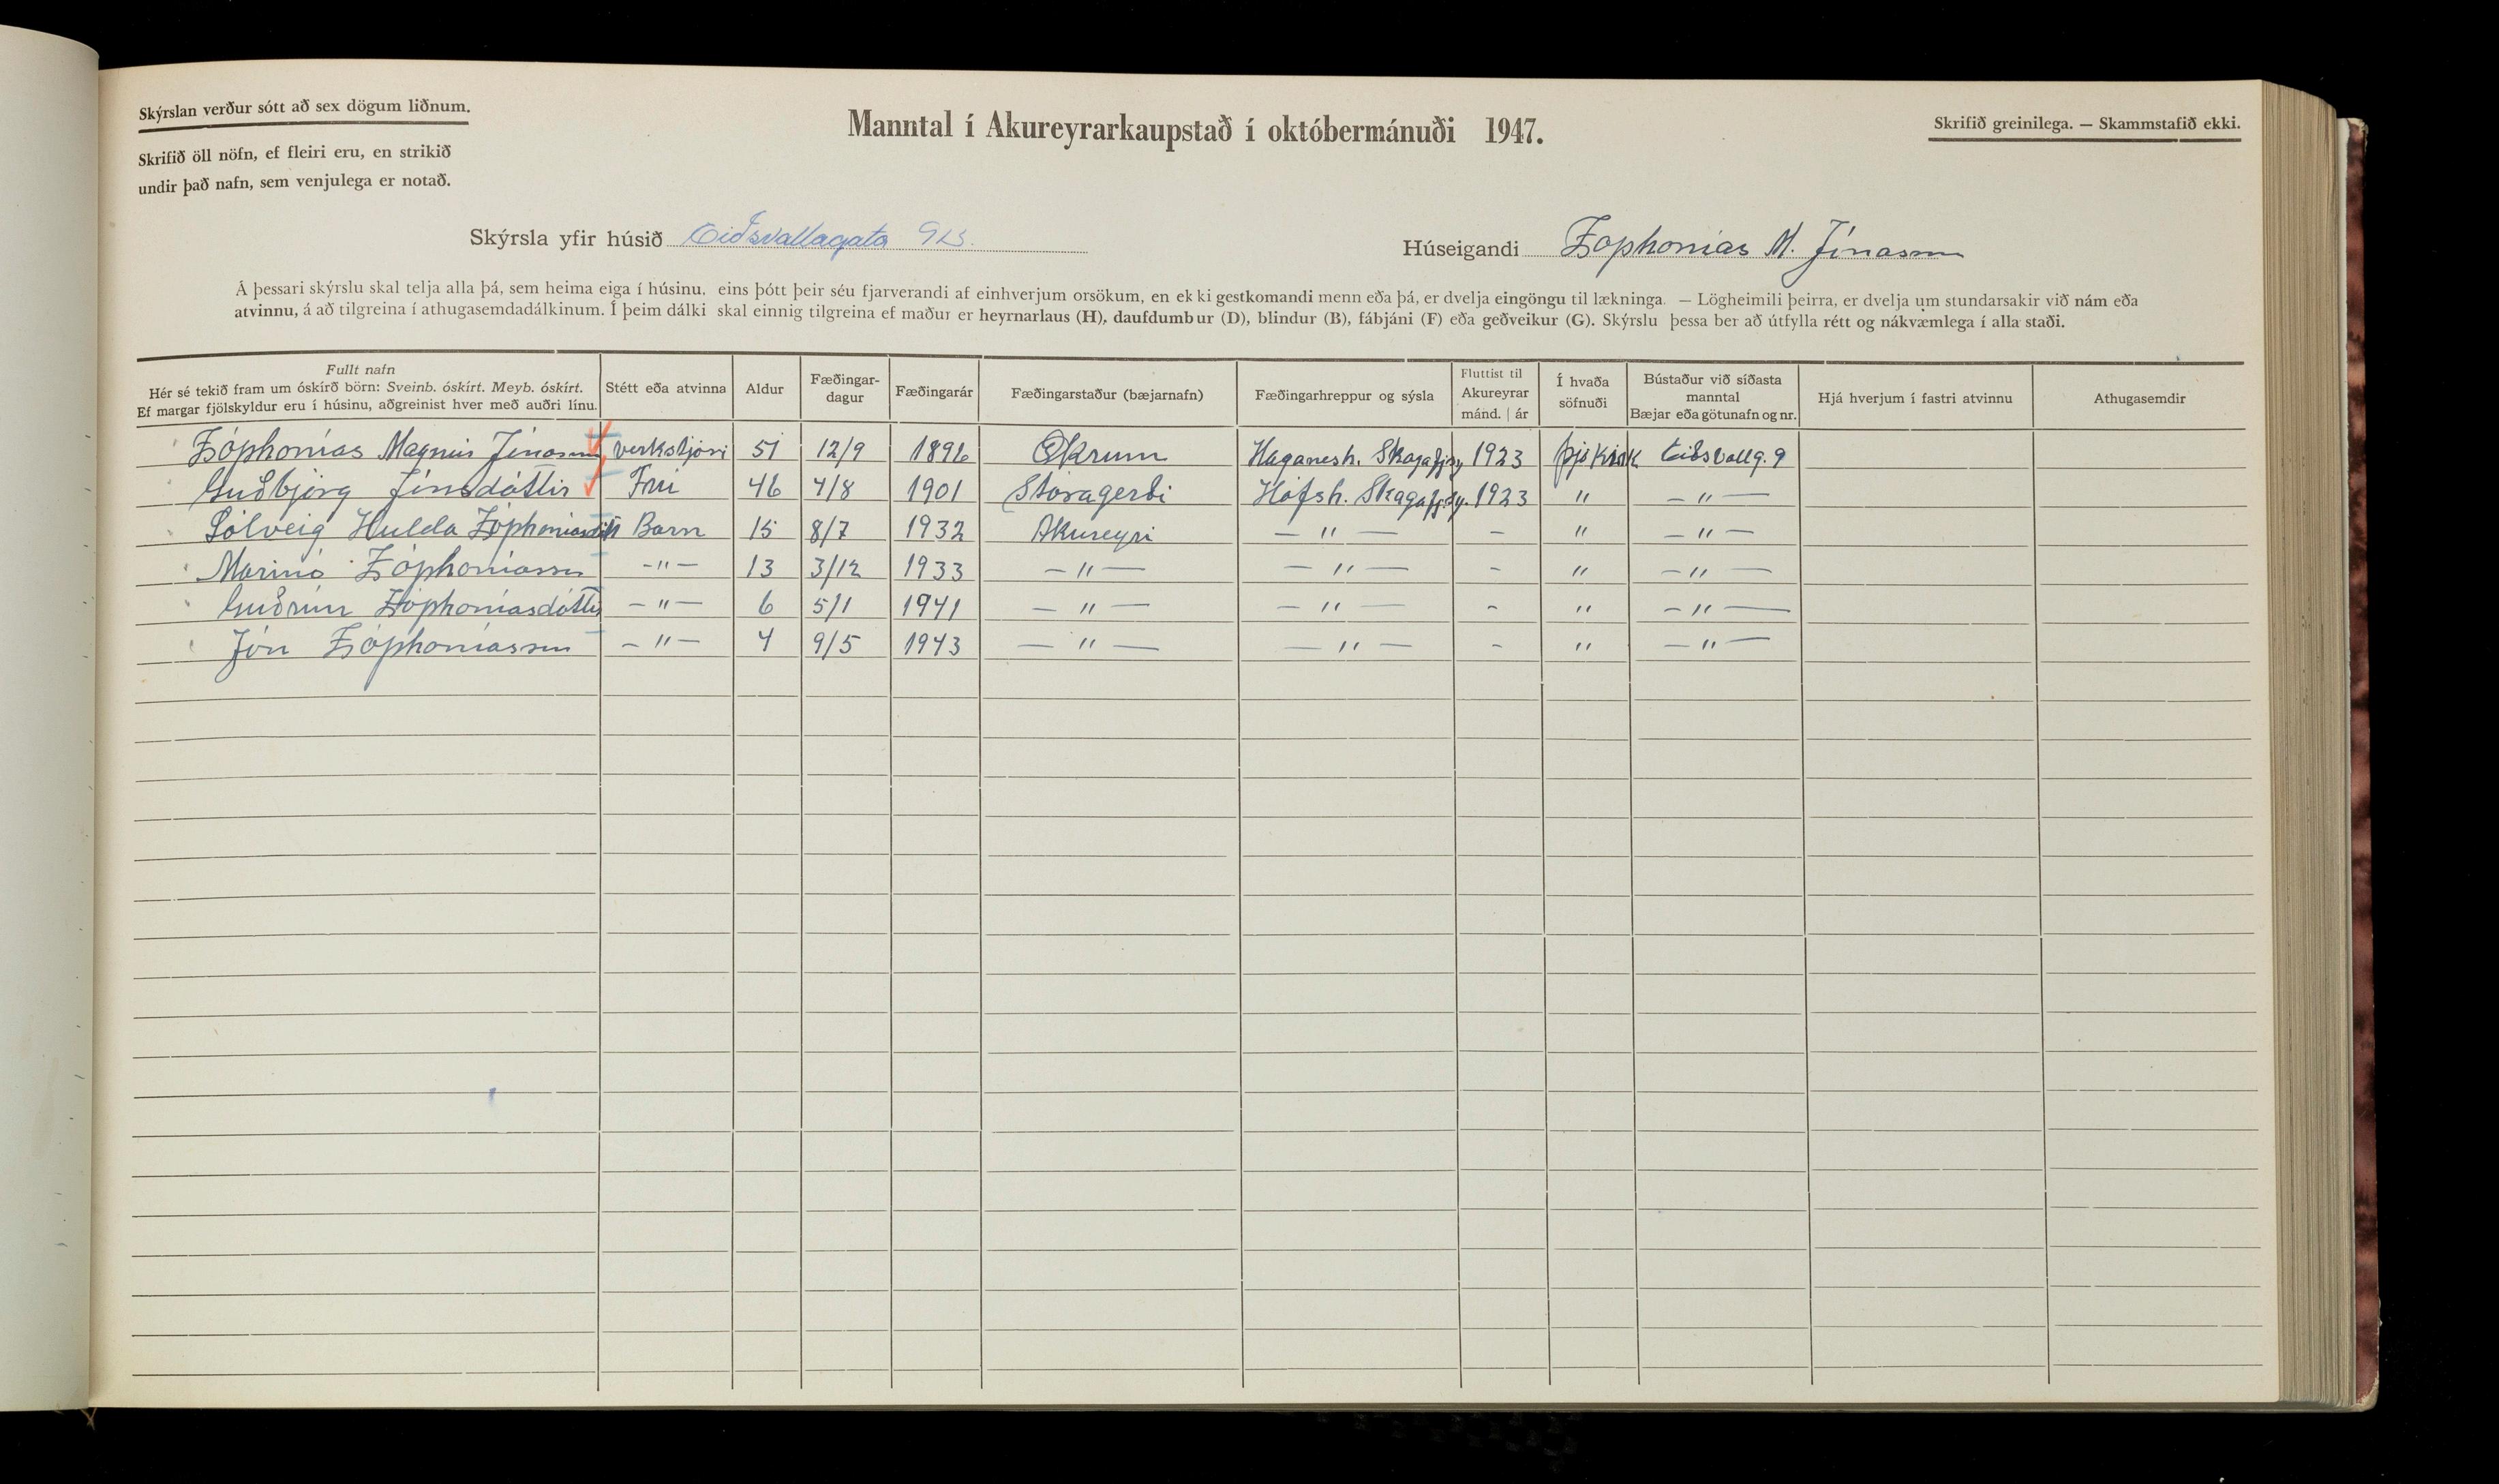 Skýrslan verður sótt að sex dögum liðnum.
Skrifið öll nöfn, ef fleiri eru, en strikið
undir það nafn, sem venjulega er notað.
Manntal í Akureyrarkaupstað í októbermánuði 1947.
Skrifið greinilega. — Skammstafið ekki.
Skýrsla yfir húsið Eiðsvallagata 9
Húseigandi Zophonías M. Jónasson
Á þessari skýrslu skal telja alla þá, sem heima eiga í húsinu, eins þótt þeir séu fjarverandi af einhverjum orsökum, en ekki gestkomandi menn eða þá, er dvelja eingöngu til lækninga. — Lögheimili þeirra, er dvelja um stundarsakir við nám eða
atvinnu, á að tilgreina í athugasemdadálkinum. Í þeim dálki skal einnig tilgreina ef maður er heyrnarlaus (H), daufdumbur (D), blindur (B), fábjáni (F) eða geðveikur (G). Skýrslu þessa ber að útfylla rétt og nákvæmlega í alla staði.
Fullt nafn
Hér sé tekið fram um óskírð börn: Sveinb. óskírt. Meyb. óskírt.
Ef margar fjölskyldur eru í húsinu, aðgreinist hver með auðri línu.
Stétt eða atvinna
Aldur
Fæðingar-
dagur
Fæðingarár
Fæðingarstaður (bæjarnafn)
Fæðingarhreppur og sýsla
Fluttist til
Akureyrar
mánd. | ár
Í hvaða
söfnuði
Bústaður við síðasta
manntal
Bæjar eða götunafn og nr.
Hjá hverjum í fastri atvinnu
Athugasemdir
Zóphonías Magnús Jónasson verkstjóri 51 12/9 1896 Ökrum Haganesh. Skagafj.sy 1923 þjókirk Eiðsvallg. 9
Guðbjörg Jónsdóttir Frú 46 4/8 1901 Stóragerði Hofsh. Skagafj.sy. 1923 " — " —
Sólveig Hulda Zóphoníasdótt Barn 15 8/7 1932 Akureyri — " — - " — " —
Marinó Zóphoníasson - " - 13 3/12 1933 — " — — " — - " — " —
Guðrún Zóphoníasdóttir - " - 6 5/1 1941 — " — — " — - " — " —
Jón Zóphoníasson - " - 4 9/5 1943 — " — — " — - " — " —